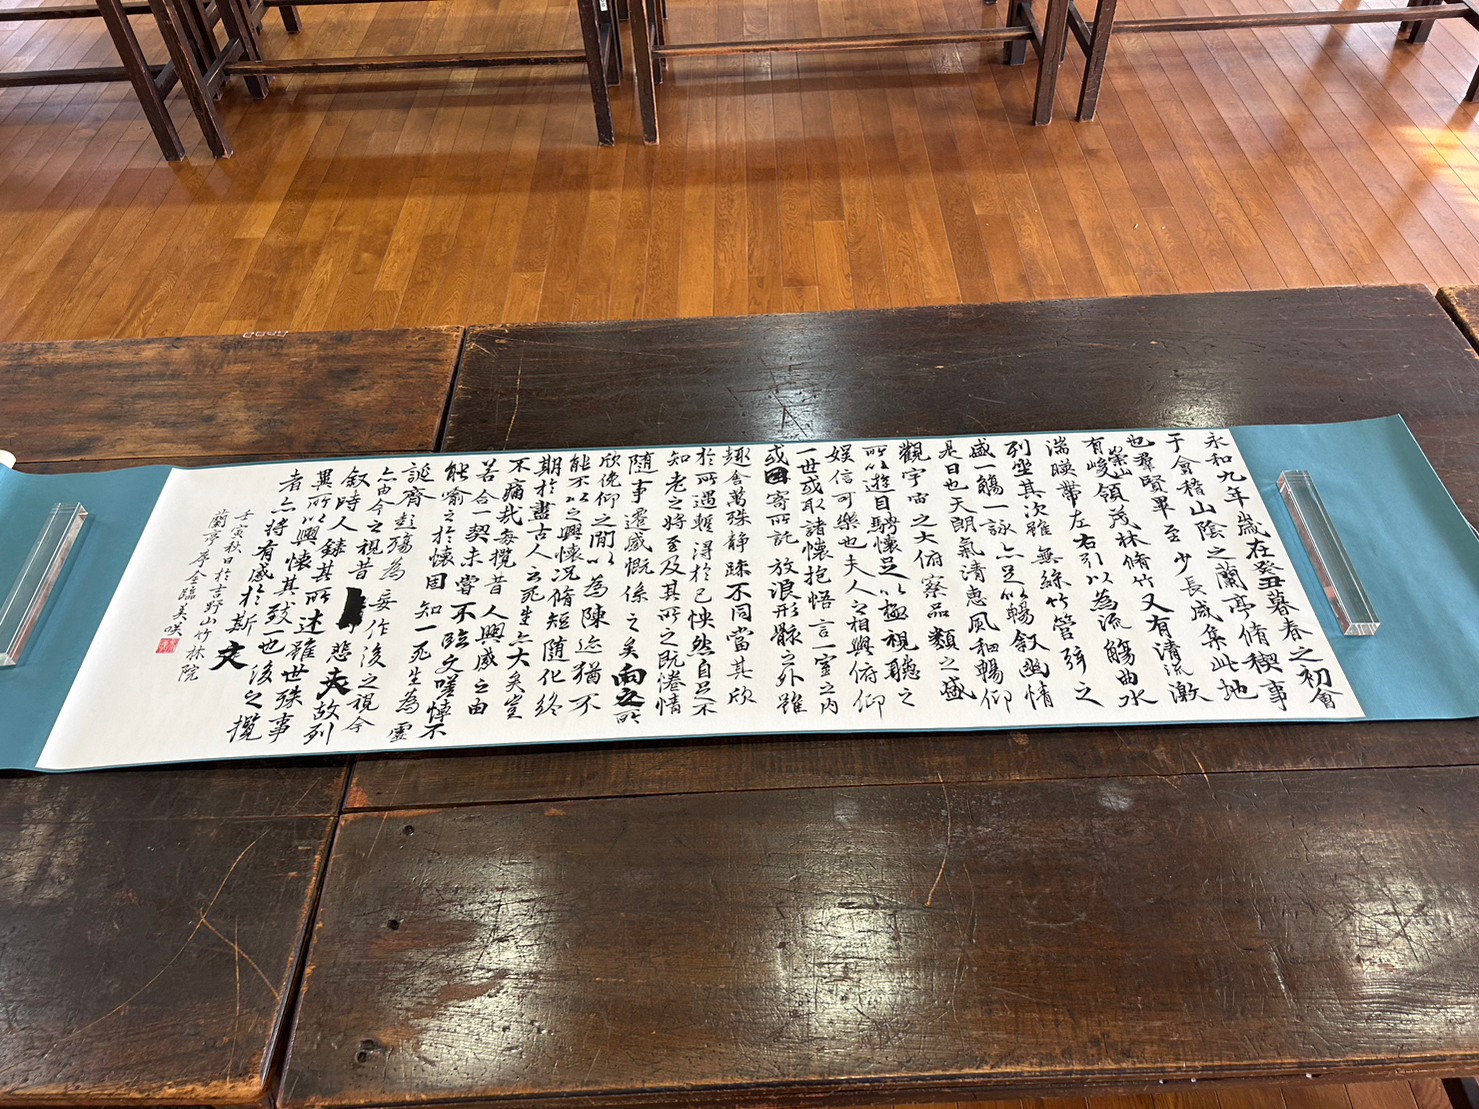 永和九年歳在癸丑暮春之初會
于會稽山陰之蘭亭脩稧事
也羣賢畢至少長咸集此地
有崇山峻領茂林脩竹又有清流激
湍暎帶左右引以為流觴曲水
列坐其次雖無絲竹管弦之
盛一觴一詠亦足以暢敘幽情
是日也天朗氣清惠風和暢仰
觀宇宙之大俯察品類之盛
所以遊目騁懷足以極視聽之
娛信可樂也夫人之相與俯仰
一世或取諸懷抱悟言一室之內
或因寄所託放浪形骸之外雖
趣舍萬殊靜躁不同當其欣
於所遇輙得於己怏然自足不
知老之將至及其所之既惓情
隨事遷感慨係之矣向之所
欣俛仰之閒以為陳迹猶不
能不以之興懷況脩短隨化終
期於盡古人云死生亦大矣豈
不痛哉每攬昔人興感之由
若合一契未嘗不臨文嗟悼不
能喻之於懷固知一死生為虛
誕齊彭殤為妄作後之視今
亦由今之視昔悲夫故列
敘時人錄其所述雖世殊事
異所以興懷其致一也後之攬
者亦將有感於斯文
壬寅秋日於吉野山竹林院
蘭亭序全臨